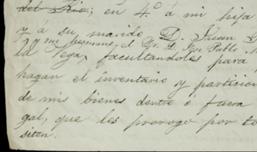 del Rio; en 4.º a mi hija
y a su marido D. Juan
y mi sobrino, el Sr. D. José Pablo
la Vega, facultandoles para
hagan el inventario y particion
de mis bienes dentro é fuera
gal, que les prorogo por to
siten